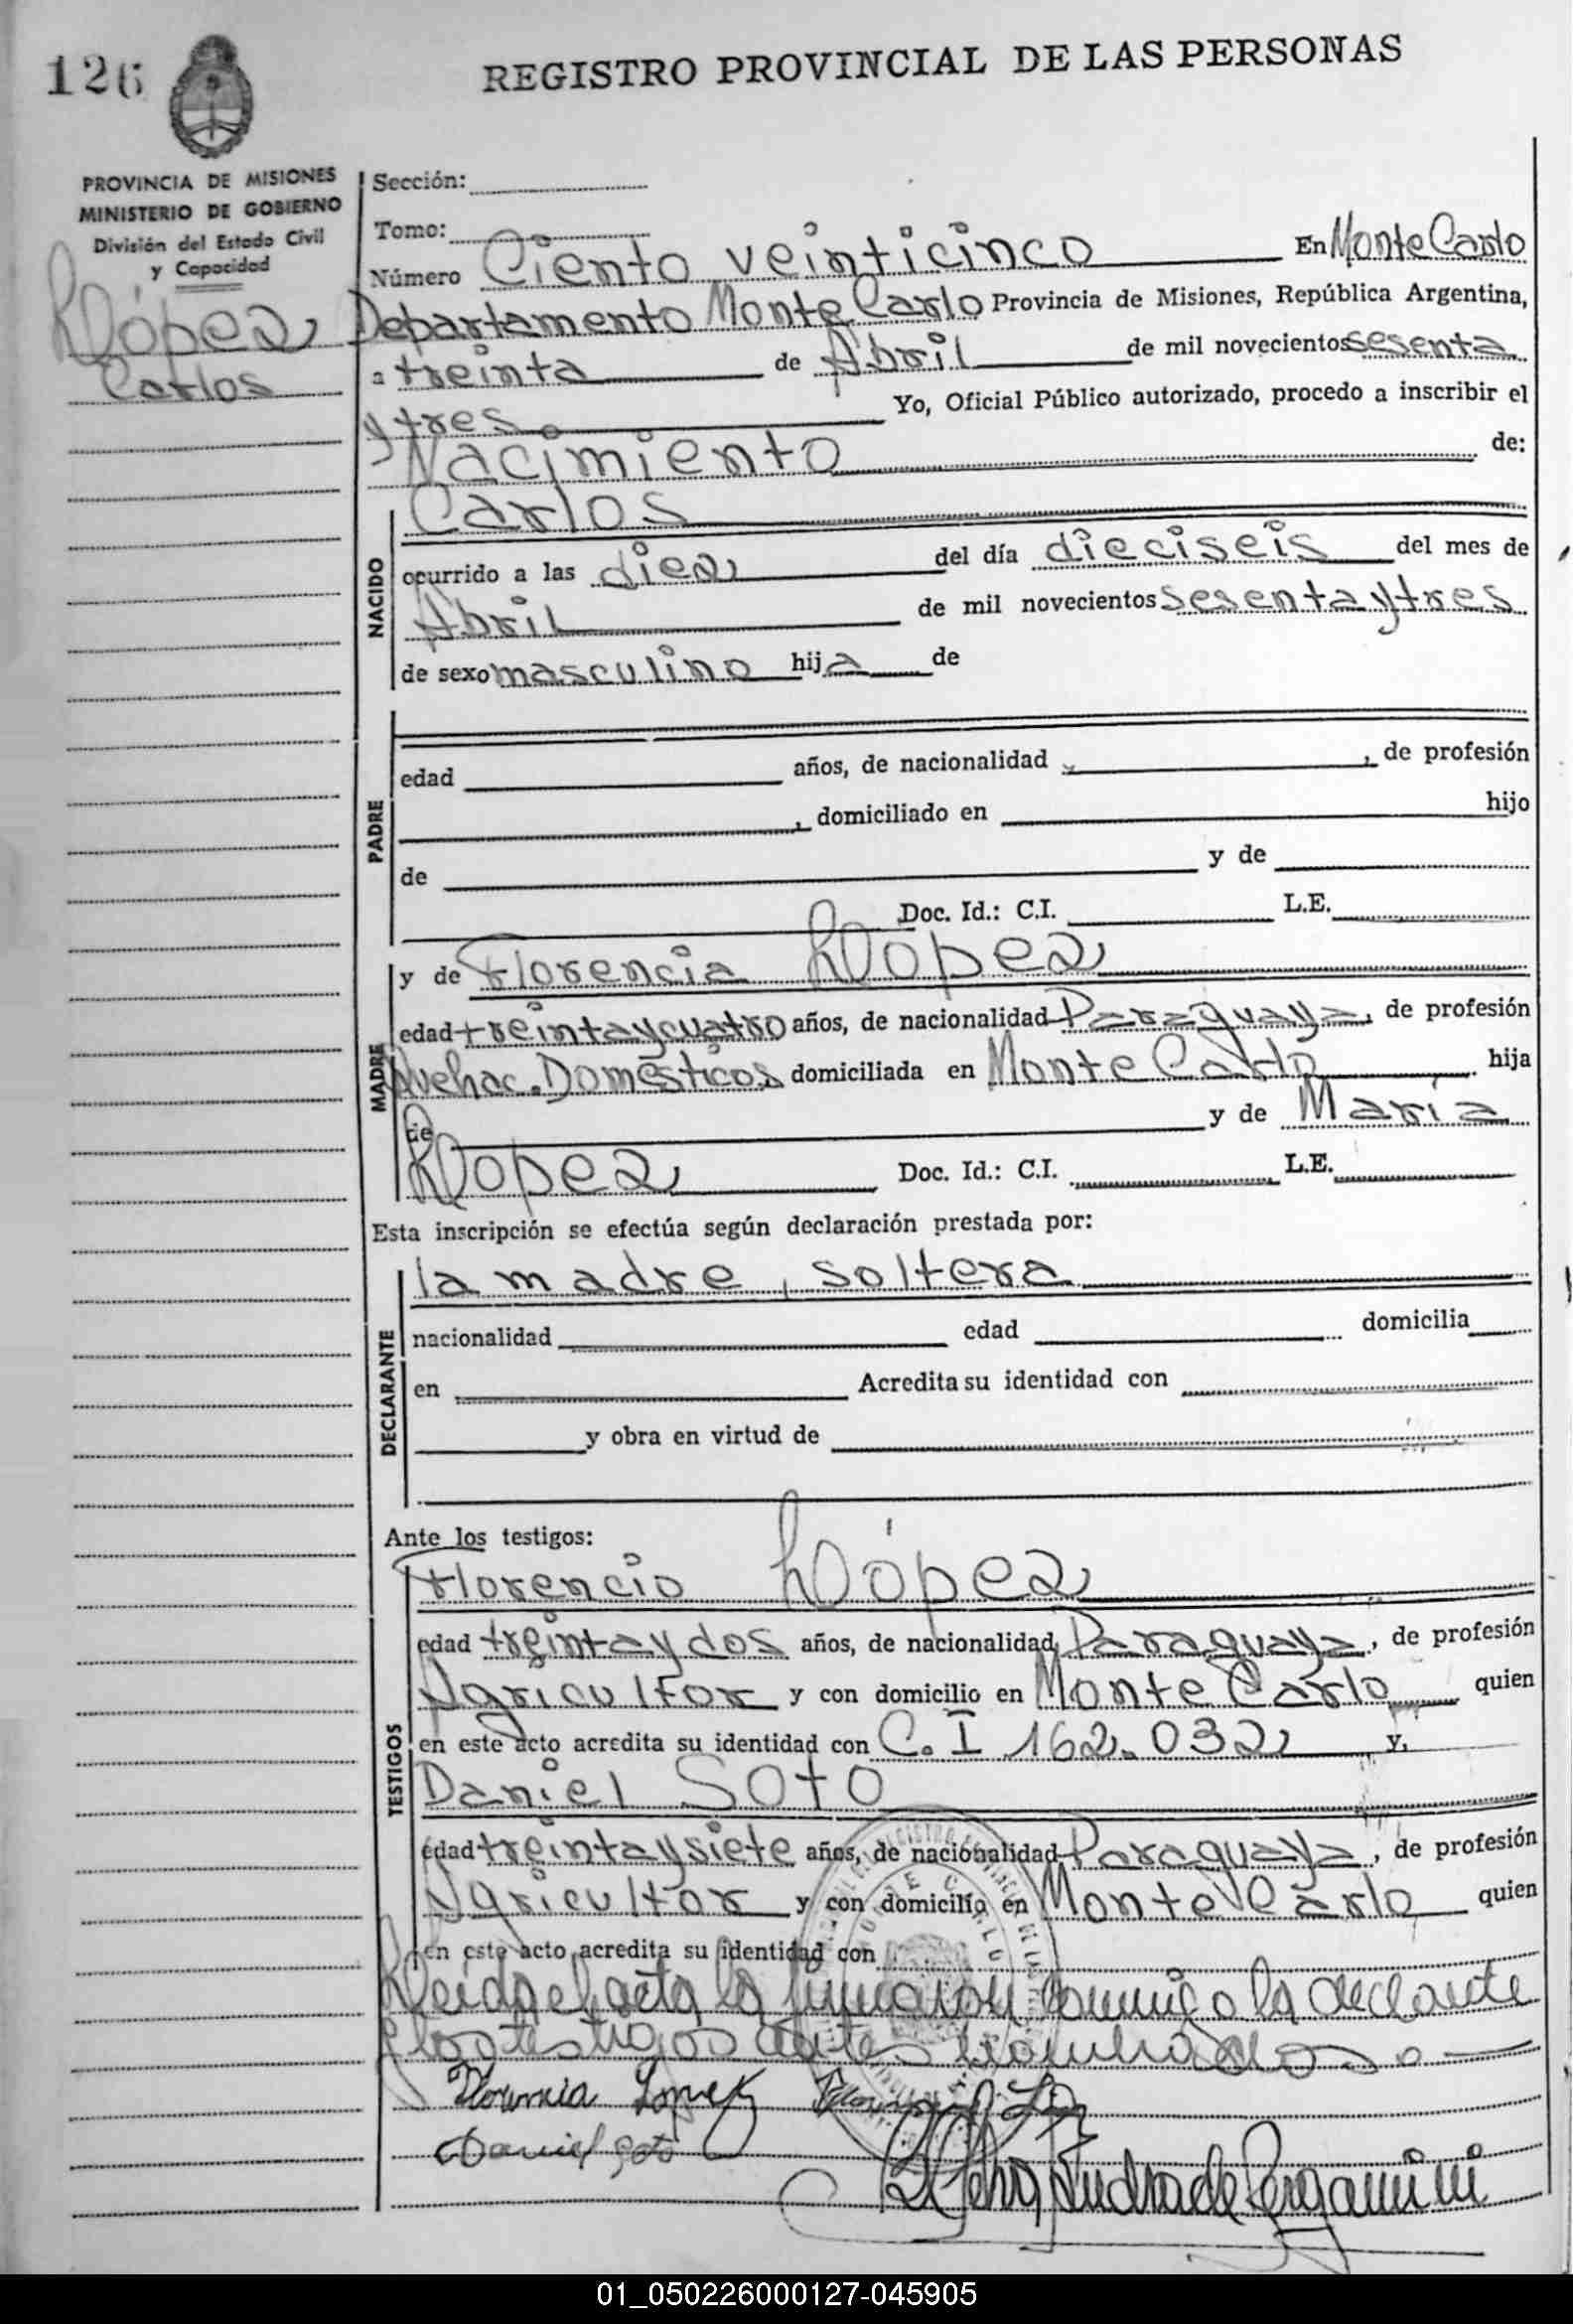 126
REGISTRO PROVINCIAL DE LAS PERSONAS
PROVINCIA DE MISIONES
MINISTERIO DE GOBIERNO
División del Estado Civil
y Capacidad
López
Carlos
Sección:
Tomo:
Número Ciento veinticinco En Monte Carlo
Departamento Monte Carlo Provincia de Misiones, República Argentina,
a treinta de Abril de mil novecientos sesenta
y tres. Yo, Oficial Público autorizado, procedo a inscribir el
Nacimiento de:
Carlos
NACIDO
ocurrido a las diez del día dieciseis del mes de
Abril de mil novecientos sesenta y tres
de sexo masculino hija de
PADRE
edad años, de nacionalidad , de profesión
, domiciliado en hijo
de y de
Doc. Id.: C.I. L.E.
MADRE
y de Florencia Lopez
edad treinta y cuatro años, de nacionalidad Paraguaya, de profesión
Quehac. Domésticos domiciliada en Monte Carlo hija
de y de María
Lopez Doc. Id.: C.I. L.E.
Esta inscripción se efectúa según declaración prestada por:
DECLARANTE
la madre, soltera
nacionalidad edad domicilia
en Acredita su identidad con
y obra en virtud de
Ante los testigos:
TESTIGOS
Florencio López
edad treinta y dos años, de nacionalidad Paraguaya, de profesión
Agricultor y con domicilio en Monte Carlo quien
en este acto acredita su identidad con C. I 162.032 y,
Daniel Soto
edad treinta y siete años, de nacionalidad Paraguaya, de profesión
Agricultor y con domicilio en Monte Carlo quien
en este acto acredita su identidad con
Leida el acta la firmaron conmigo la declarante
y los testigos antes nombrados.
Florencia Lopez
Daniel Soto
Andrade Bergamini
01_050226000127-045905